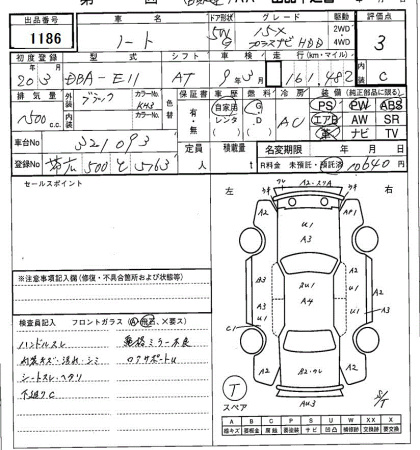 出品番号 車名 ドア形状 グレード 駆動 評価点
1186 ノート 5W 15-X 2WD 4WD 3
プラスナビHDD
初度登録 型式 シフト 車検 走行(km・マイル) 内装
20年3月 DBA-E11 AT 9年3月 161,482 C
排気量 外装 ブラック カラーNo. KH3 色替 保証書 車歴 燃料 冷房 装備(純正部品に限る)
1500c.c. 内装 カラーNo. 有・無 自家用 レンタ G D AC PS PW ABS
エアB AW SR
革 ナビ TV
車台No 321093 定員 人 積載量 名変期限 年 月 日
登録No 500 と 5763 R料金 未預託・預託済 10640円
セールスポイント 左 右
※注意事項記入欄(修復・不具合箇所および状態)
検査員記入 フロントガラス(A・飛石・×要ス)
ハンドルスレ 電格ミラー不良
内装キズ・汚れ・シミ ロアサポートU
シートスレ・ヘタリ
下廻りC
A2 AP1
U1
A3
A3 A2
U1 A4 U1 A3
C1
A2 A2
T スペア
AU3
A B C P S U W X XX
線キズ 塗装傷 腐蝕 要塗装 サビ 凹凸 補修跡 交換跡 要交換